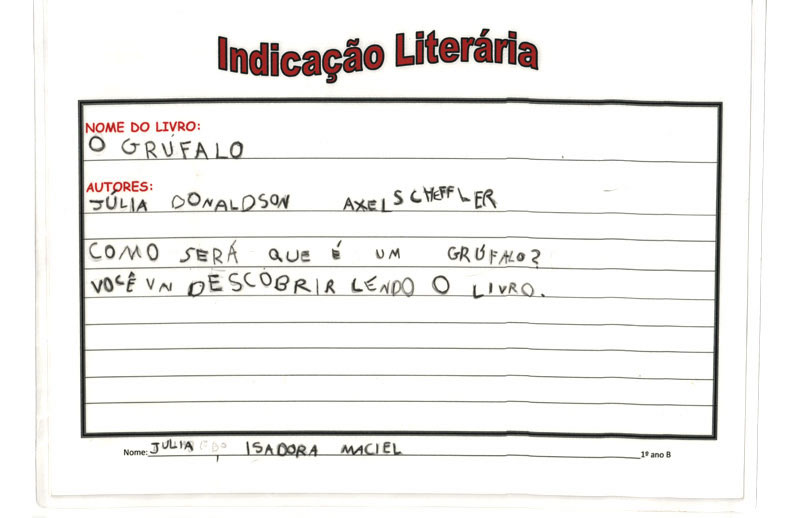 Indicação Literária
NOME DO LIVRO:
O GRÚFALO
AUTORES:
JÚLIA DONALDSON AXEL SCHEFFLER
COMO SERÁ QUE É UM GRÚFALO?
VOCÊ VAI DESCOBRIR LENDO O LIVRO.
Nome: JULIA ISADORA MACIEL 1º ano B